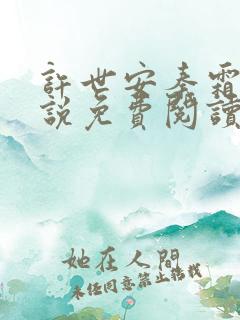 許世安秦霜
說免費閱讀
她在人間
未經同意禁止搬載